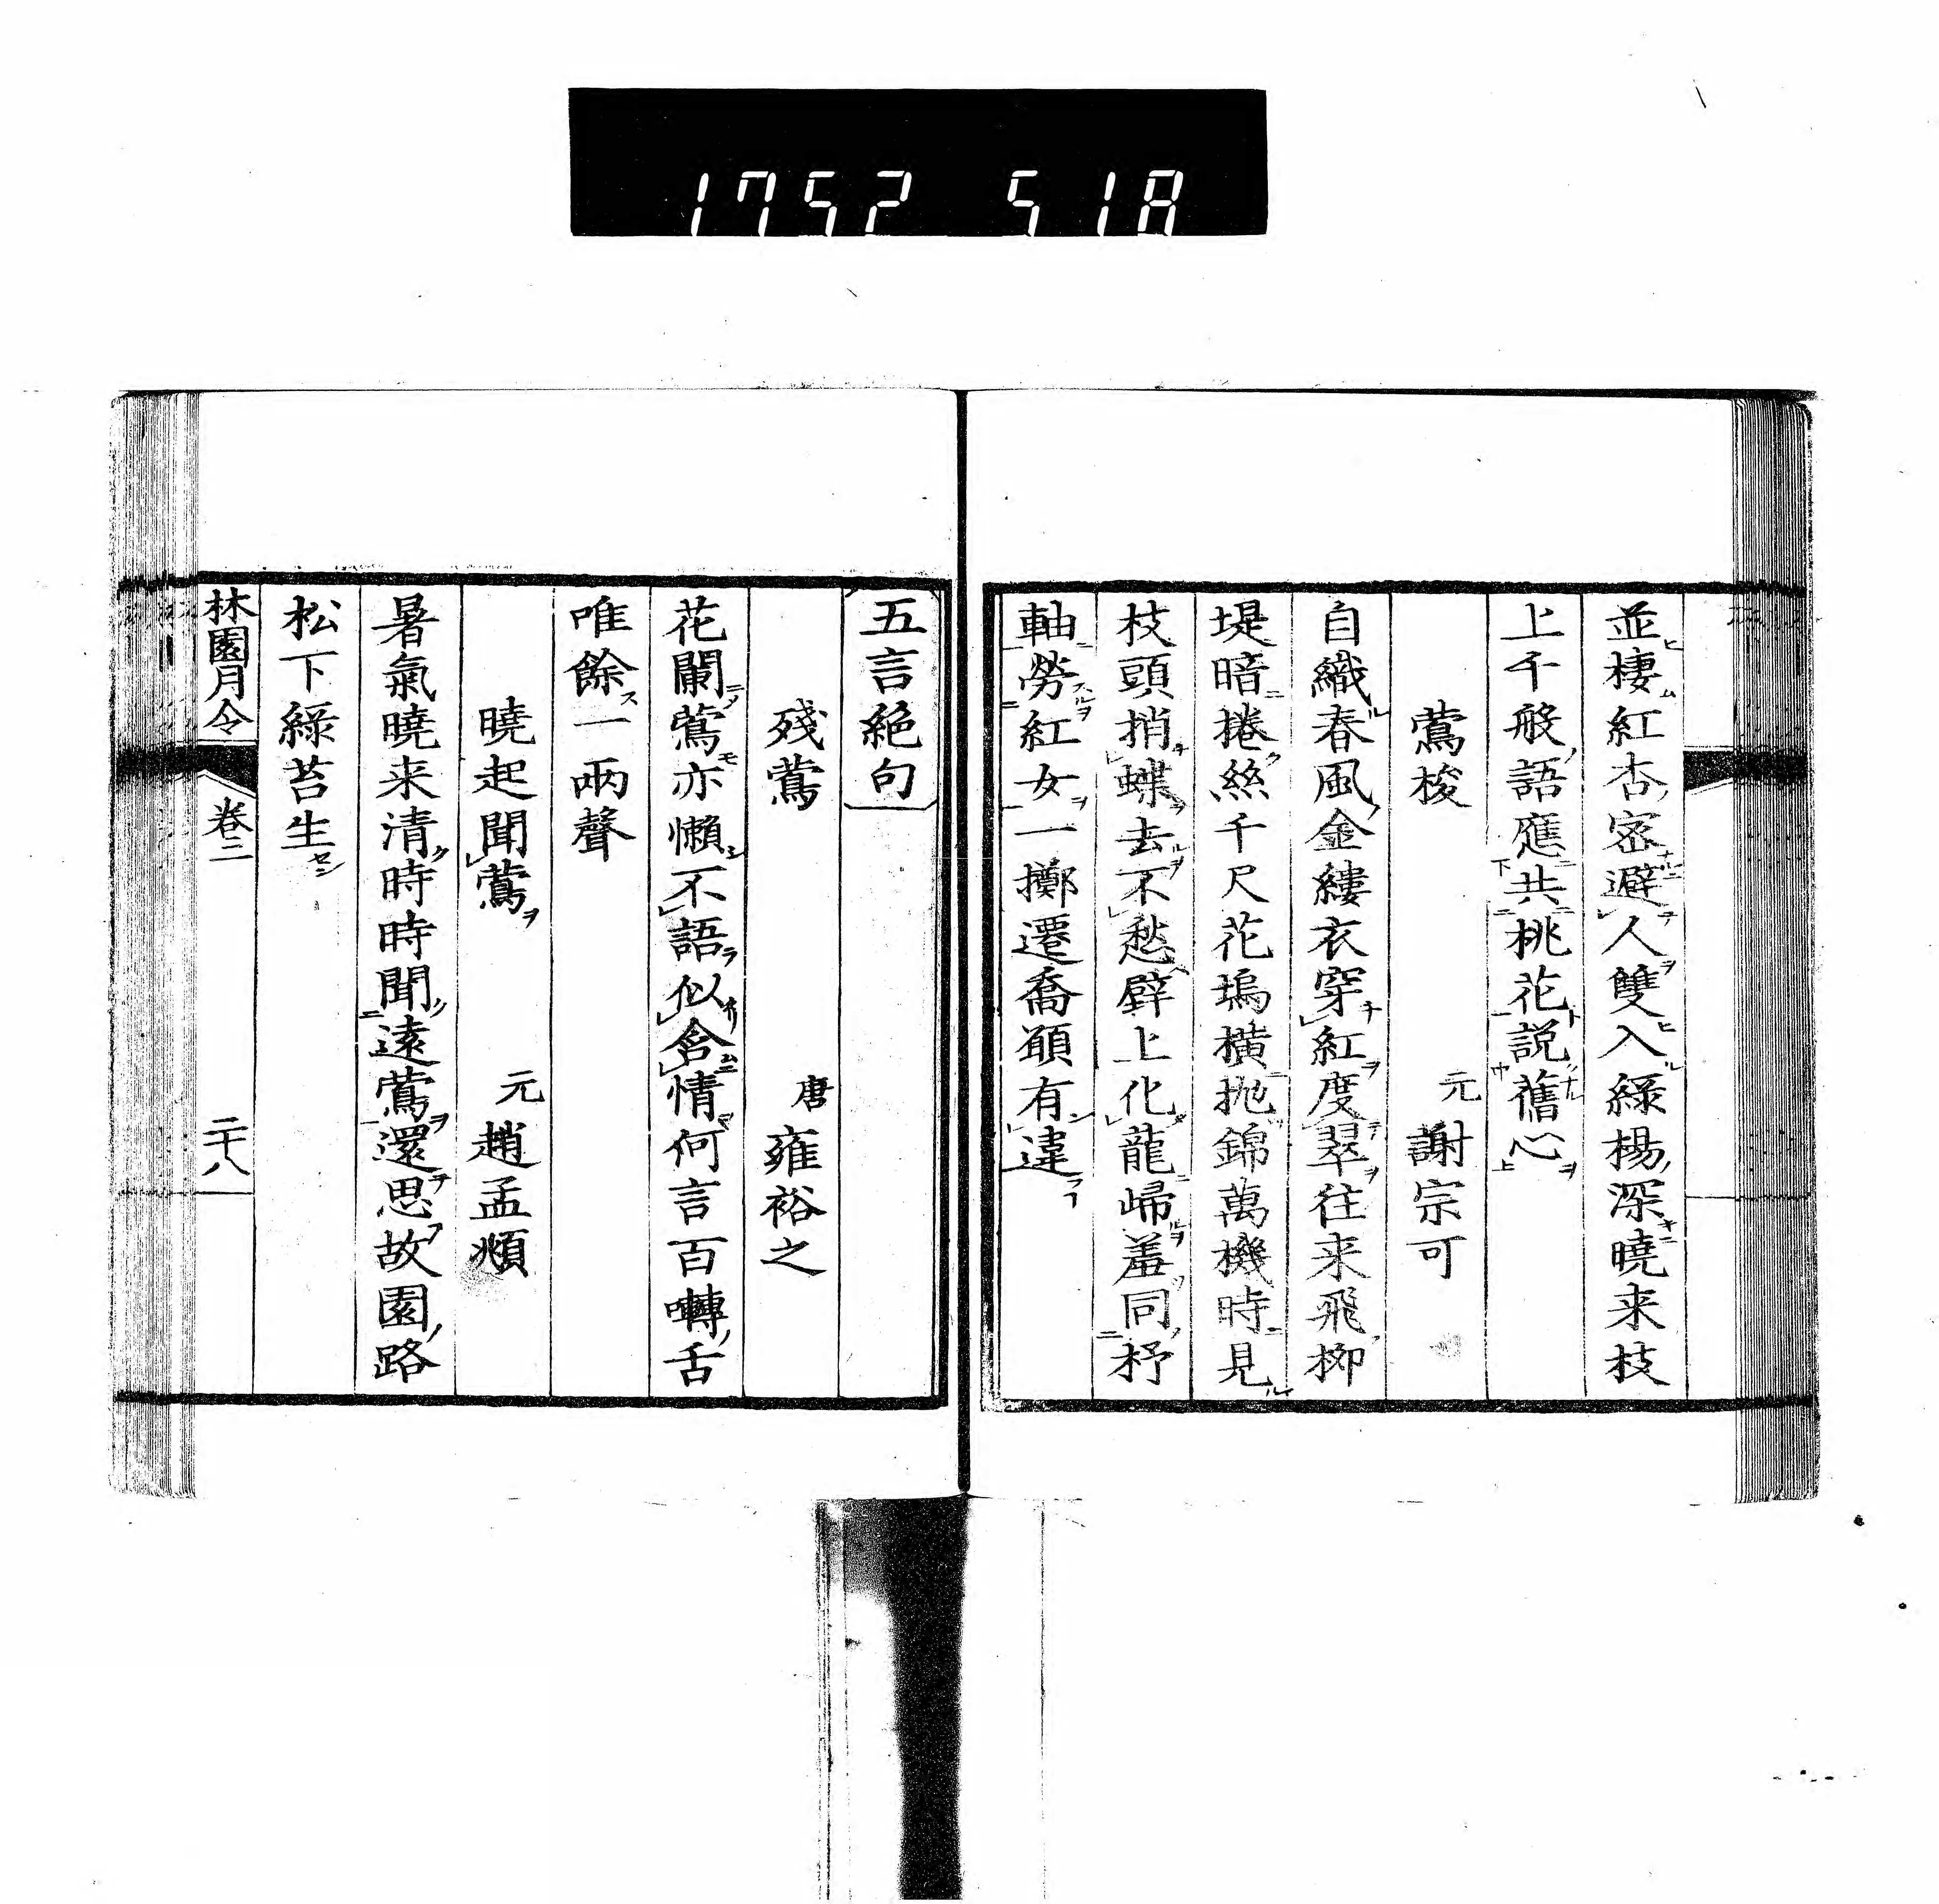 1752 518
並棲紅杏密避人雙入綠楊深曉来枝
上千般語應共桃花説舊心
鶯梭 元 謝宗可
自織春風金縷衣穿紅度翠往来飛柳
堤暗捲絲千尺花塢橫抛錦萬機時見
枝頭捎蝶去不愁壁上化龍歸羞同杼
軸勞紅女一擲遷喬願有違
五言絶句
殘鶯 唐 雍裕之
花闌鶯亦懶不語似含情何言百囀舌
唯餘一兩聲
曉起聞鶯 元 趙孟頫
暑氣曉来清時時聞遠鶯還思故園路
松下綠苔生
林園月令 卷二 二十八